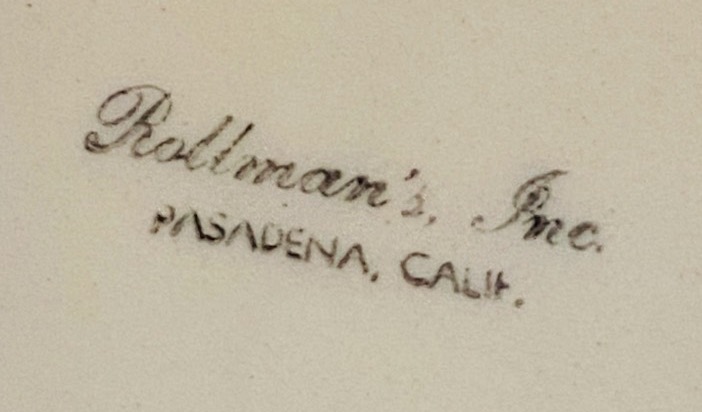 Rollman's, Inc.
PASADENA, CALIF.